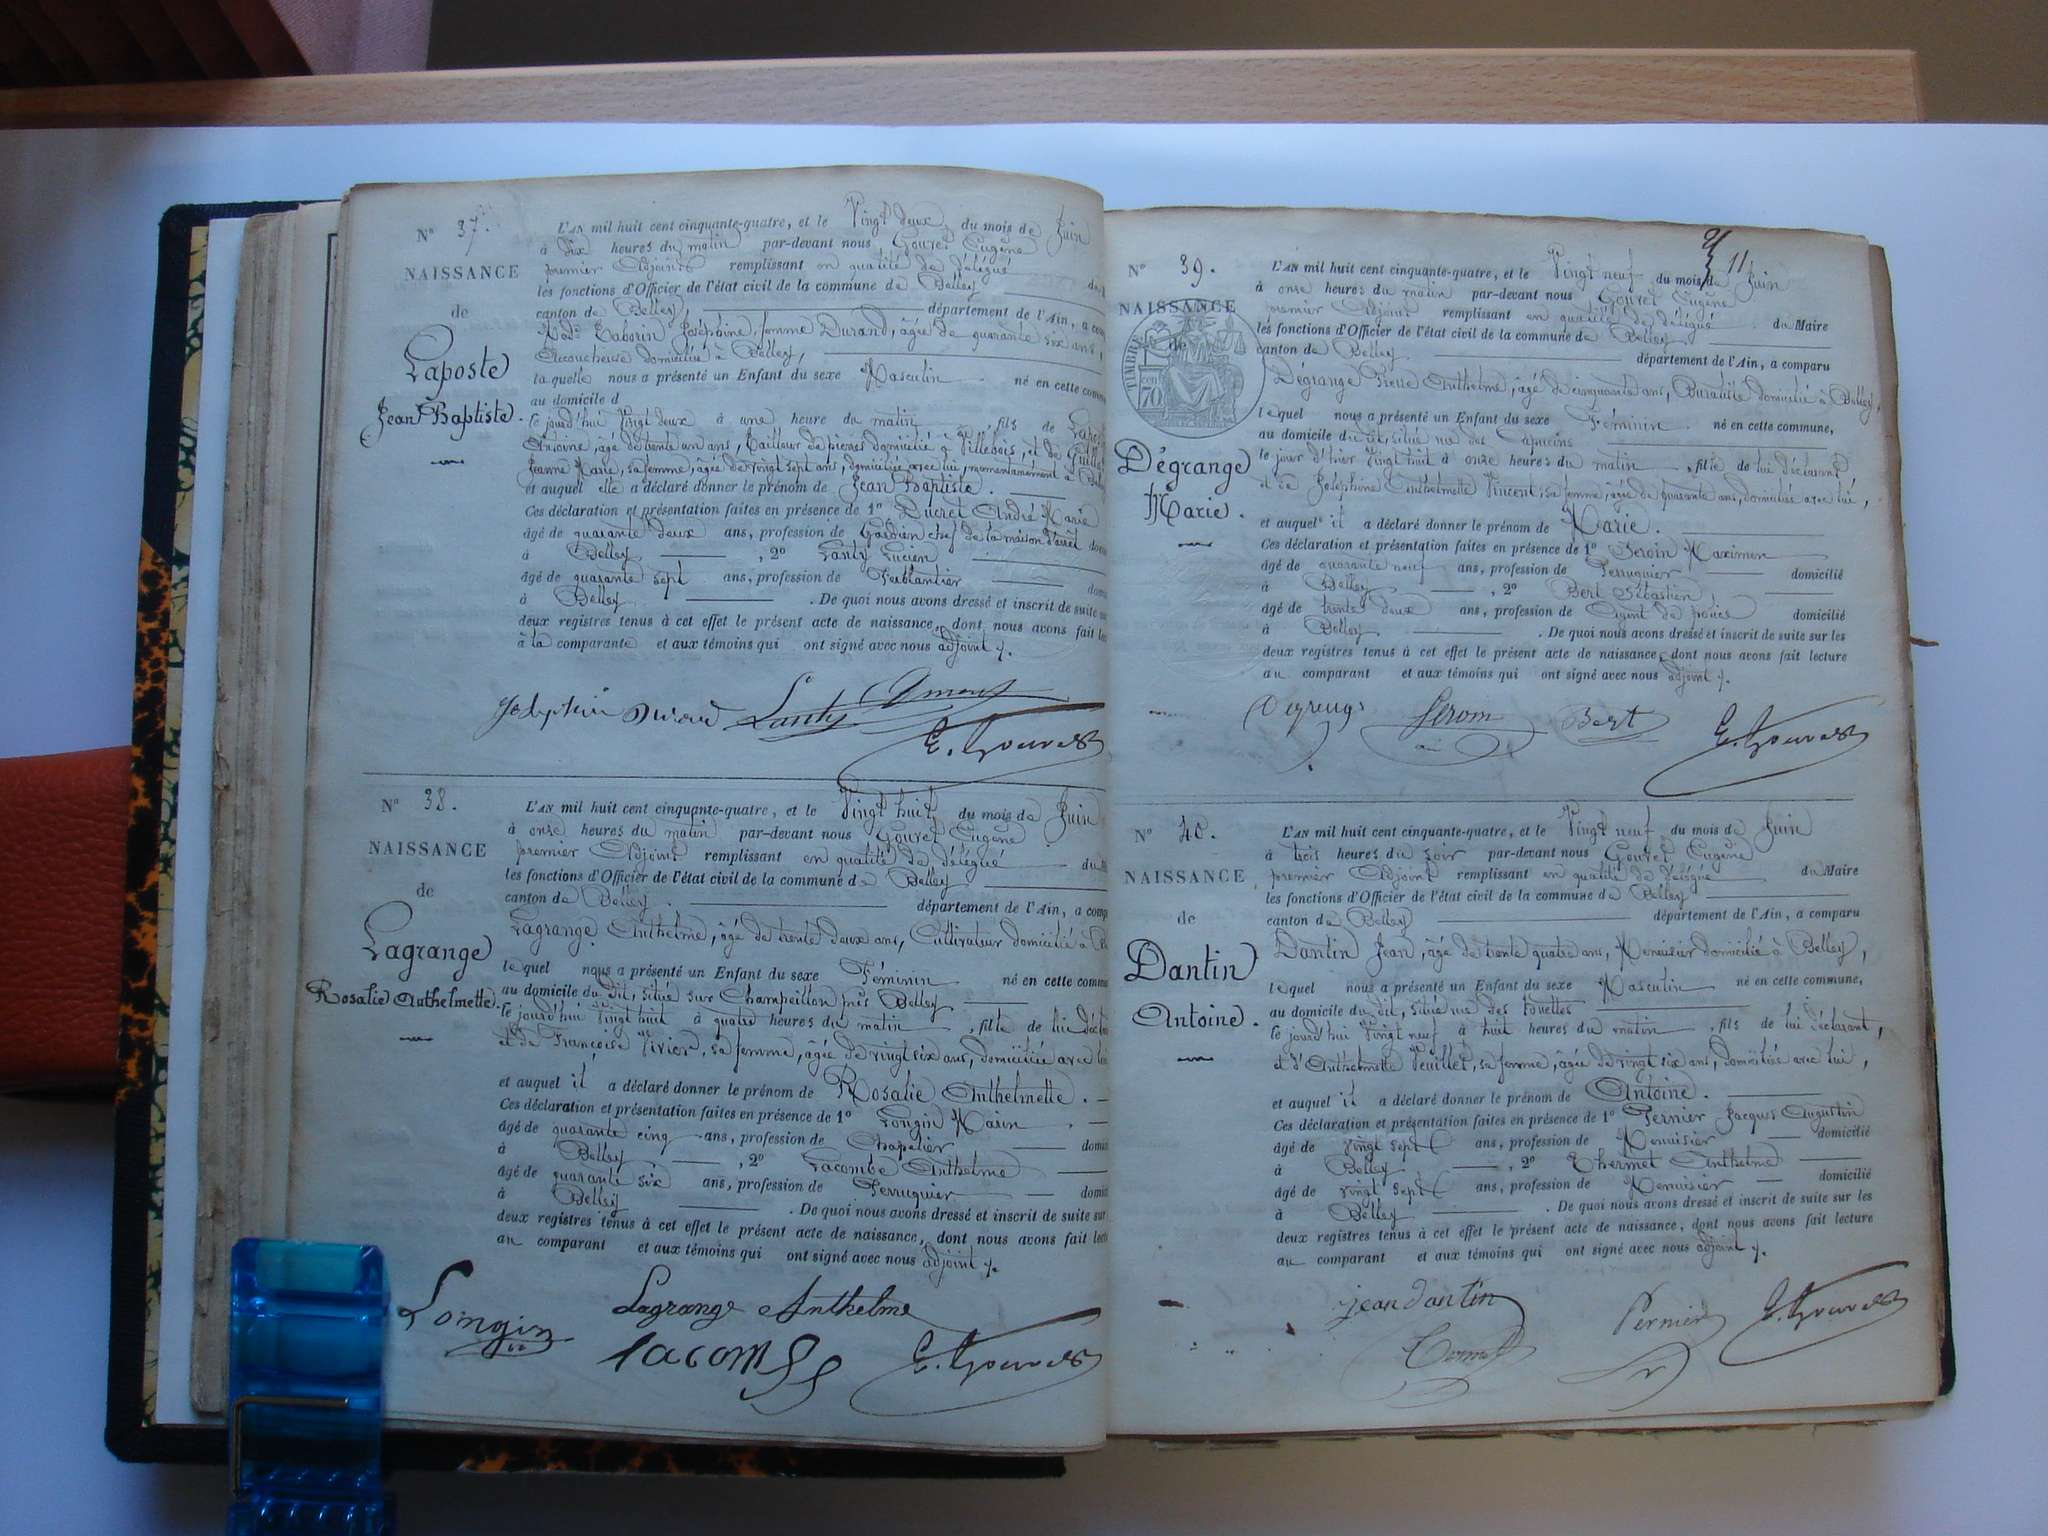 N° 37.
NAISSANCE
de
Laposte
Jean Baptiste.
L'AN mil huit cent cinquante-quatre, et le Vingt deux du mois de Juin
à dix heures du matin par-devant nous Gouvet Eugène
premier Adjoint remplissant en qualité de délégué
les fonctions d'Officier de l'état civil de la commune de Belley
canton de Belley, département de l'Ain, a
Taborin Joséphine, femme Durand, âgée de quarante six ans,
Accoucheuse domiciliée à Belley,
laquelle nous a présenté un Enfant du sexe Masculin né en cette
au domicile d
le jourd'hui Vingt deux à une heure du matin, fils de
Antoine, âgé de trente un ans, Tailleur de pierres domicilié à Villebois, et de
Jeanne Marie, sa femme, âgée de vingt sept ans, domiciliée avec lui, momentanément à
et auquel elle a déclaré donner le prénom de Jean Baptiste.
Ces déclaration et présentation faites en présence de 1° Ducret André Marie
âgé de quarante deux ans, profession de Gardien chef de la maison d'arrêt
à Belley, 2° Lanty Lucien
âgé de quarante sept ans, profession de Ferblantier
à Belley. De quoi nous avons dressé et inscrit de suite
deux registres tenus à cet effet le présent acte de naissance, dont nous avons fait
à la comparante et aux témoins qui ont signé avec nous adjoint
Joséphine Durand Lanty
E. Gouvet
N° 38.
NAISSANCE
de
Lagrange
Rosalie Anthelmette.
L'AN mil huit cent cinquante-quatre, et le Vingt huit du mois de Juin
à onze heures du matin par-devant nous Gouvet Eugène
premier Adjoint remplissant en qualité de délégué
les fonctions d'Officier de l'état civil de la commune de Belley
canton de Belley. département de l'Ain, a
Lagrange Anthelme, âgé de trente deux ans, Cultivateur domicilié à
lequel nous a présenté un Enfant du sexe Féminin né en cette
au domicile du dit, situé sur Champeillon près Belley
le jourd'hui vingt huit à quatre heures du matin, fille de lui
et de Françoise Vivier, sa femme, âgée de vingt six ans, domiciliée avec
et auquel il a déclaré donner le prénom de Rosalie Anthelmette.
Ces déclaration et présentation faites en présence de 1° Longin Marin
âgé de quarante cinq ans, profession de Chapelier
à Belley, 2° Lacombe Anthelme
âgé de quarante six ans, profession de Perruquier
à Belley. De quoi nous avons dressé et inscrit de suite sur
deux registres tenus à cet effet le présent acte de naissance, dont nous avons fait
au comparant et aux témoins qui ont signé avec nous adjoint
Longin Lagrange Anthelme
Lacombe E. Gouvet
11
N° 39.
NAISSANCE
de
TIMBRE
70
Dégrange
Marie.
L'AN mil huit cent cinquante-quatre, et le Vingt neuf du mois de Juin
à onze heures du matin par-devant nous Gouvet Eugène
premier Adjoint remplissant en qualité de délégué du Maire
les fonctions d'Officier de l'état civil de la commune de Belley
canton de Belley département de l'Ain, a comparu
Dégrange Pierre Anthelme, âgé de cinquante ans, Buraliste domicilié à Belley,
lequel nous a présenté un Enfant du sexe Féminin né en cette commune,
au domicile du dit, situé rue des Capucins
le jour d'hier Vingt huit à onze heures du matin, fille de lui déclarant
et de Joséphine Anthelmette Vincent, sa femme, âgée de quarante ans, domiciliée avec lui,
et auquel il a déclaré donner le prénom de Marie.
Ces déclaration et présentation faites en présence de 1° Seroin Maximin
âgé de quarante neuf ans, profession de Perruquier domicilié
à Belley, 2° Bert Sébastien
âgé de trente deux ans, profession de Agent de police domicilié
à Belley. De quoi nous avons dressé et inscrit de suite sur les
deux registres tenus à cet effet le présent acte de naissance, dont nous avons fait lecture
au comparant et aux témoins qui ont signé avec nous adjoint
Bert E. Gouvet
N° 40.
NAISSANCE
de
Dantin
Antoine.
L'AN mil huit cent cinquante-quatre, et le Vingt neuf du mois de Juin
à trois heures du soir par-devant nous Gouvet Eugène
premier Adjoint remplissant en qualité de délégué du Maire
les fonctions d'Officier de l'état civil de la commune de Belley
canton de Belley département de l'Ain, a comparu
Dantin Jean, âgé de trente quatre ans, Menuisier domicilié à Belley,
lequel nous a présenté un Enfant du sexe Masculin né en cette commune,
au domicile du dit, situé rue des
le jourd'hui Vingt neuf à huit heures du matin, fils de lui déclarant,
et d'Anthelmette Peuillet, sa femme, âgée de vingt six ans, domiciliée avec lui,
et auquel il a déclaré donner le prénom de Antoine.
Ces déclaration et présentation faites en présence de 1° Pernier Jacques Augustin
âgé de vingt sept ans, profession de Menuisier domicilié
à Belley, 2° Thermet Anthelme
âgé de vingt sept ans, profession de Menuisier domicilié
à Belley. De quoi nous avons dressé et inscrit de suite sur les
deux registres tenus à cet effet le présent acte de naissance, dont nous avons fait lecture
au comparant et aux témoins qui ont signé avec nous adjoint
jean dantin Pernier E. Gouvet